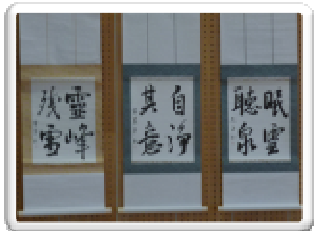 眠雲
聽泉
自淨
其意
靈峰
残雪